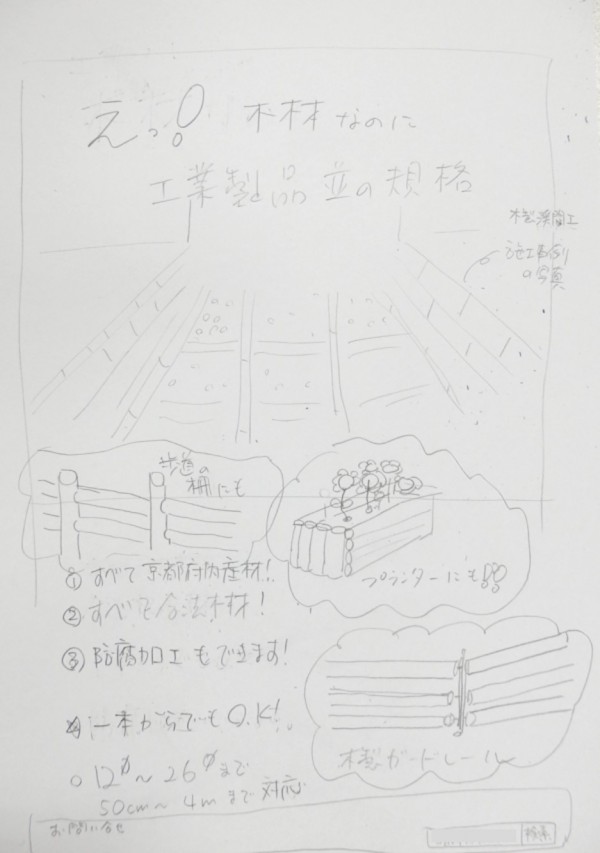 えっ!! 木材なのに
工業製品並の規格
木製渓間工
施工事例
の写真
歩道の
柵にも
プランターにも!!
① すべて京都府内産材!!
② すべて合法木材!
③ 防腐加工もできます!
④ 一本からでもO.K!.
木製ガードレール
○ 12φ～26φまで
50cm～4mまで対応
お問い合せ
検索